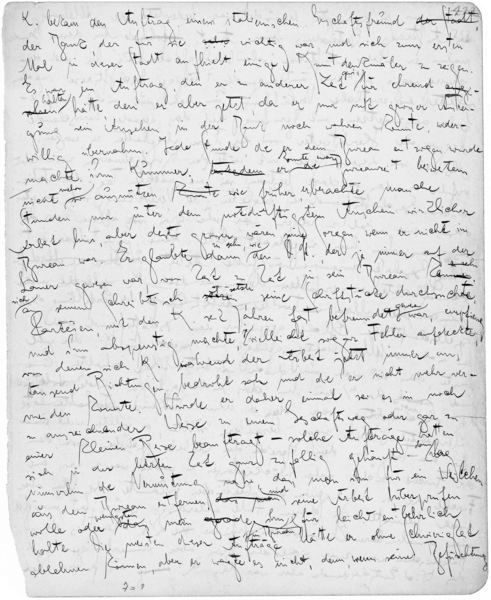 K. bekam den Auftrag einem italienischen Geschäftsfreund
der Bank, der für sie sehr wichtig war und sich zum ersten
Mal in dieser Stadt aufhielt einige Kunstdenkmäler zu zeigen.
Es war ein Auftrag, den er zu anderer Zeit gewiß für ehrend
gehalten hätte den er aber jetzt da er nur mit großer Anstren-
gung sein Ansehen in der Bank noch wahren konnte, wider-
willig übernahm. Jede Stunde die er dem Bureau entzogen wurde
machte ihm Kummer, er konnte zwar die Bureauzeit bei weitem
nicht mehr so ausnützen wie früher er brachte manche
Stunden nur unter dem notdürftigsten Anschein wirklicher
Arbeit hin, aber desto größer waren seine Sorgen, wenn er nicht im
Bureau war. Er glaubte dann zu sehn wie der ja immer auf der
Lauer gewesen war von Zeit zu Zeit in sein Bureau kam sich
an seinen Schreibtisch setzte seine Schriftstücke durchsuchte
Parteien mit den K seit Jahren fast befreundet gewesen war, empfieng
und ihm abspenstig machte, vielleicht sogar Fehler aufdeckte,
von denen sich K. während der Arbeit jetzt immer aus
tausend Richtungen bedroht sah und die er nicht mehr ver-
meiden konnte. Wurde er daher einmal sei es in noch
so auszeichnender Weise zu einem Geschäftsweg oder gar zu
einer kleinen Reise beauftragt – solche Aufträge hatten
sich in der letzten Zeit ganz zufällig gehäuft – lag
immerhin die Vermutung nahe daß man ihn für ein Weilchen
aus dem Bureau entfernen und seine Arbeit überprüfen
wolle oder man ihn für leicht entbehrlich
halte Die meisten dieser Aufträge hätte er ohne Schwierigkeit
ablehnen können, aber er wagte es nicht, denn wenn seine Befürchtung